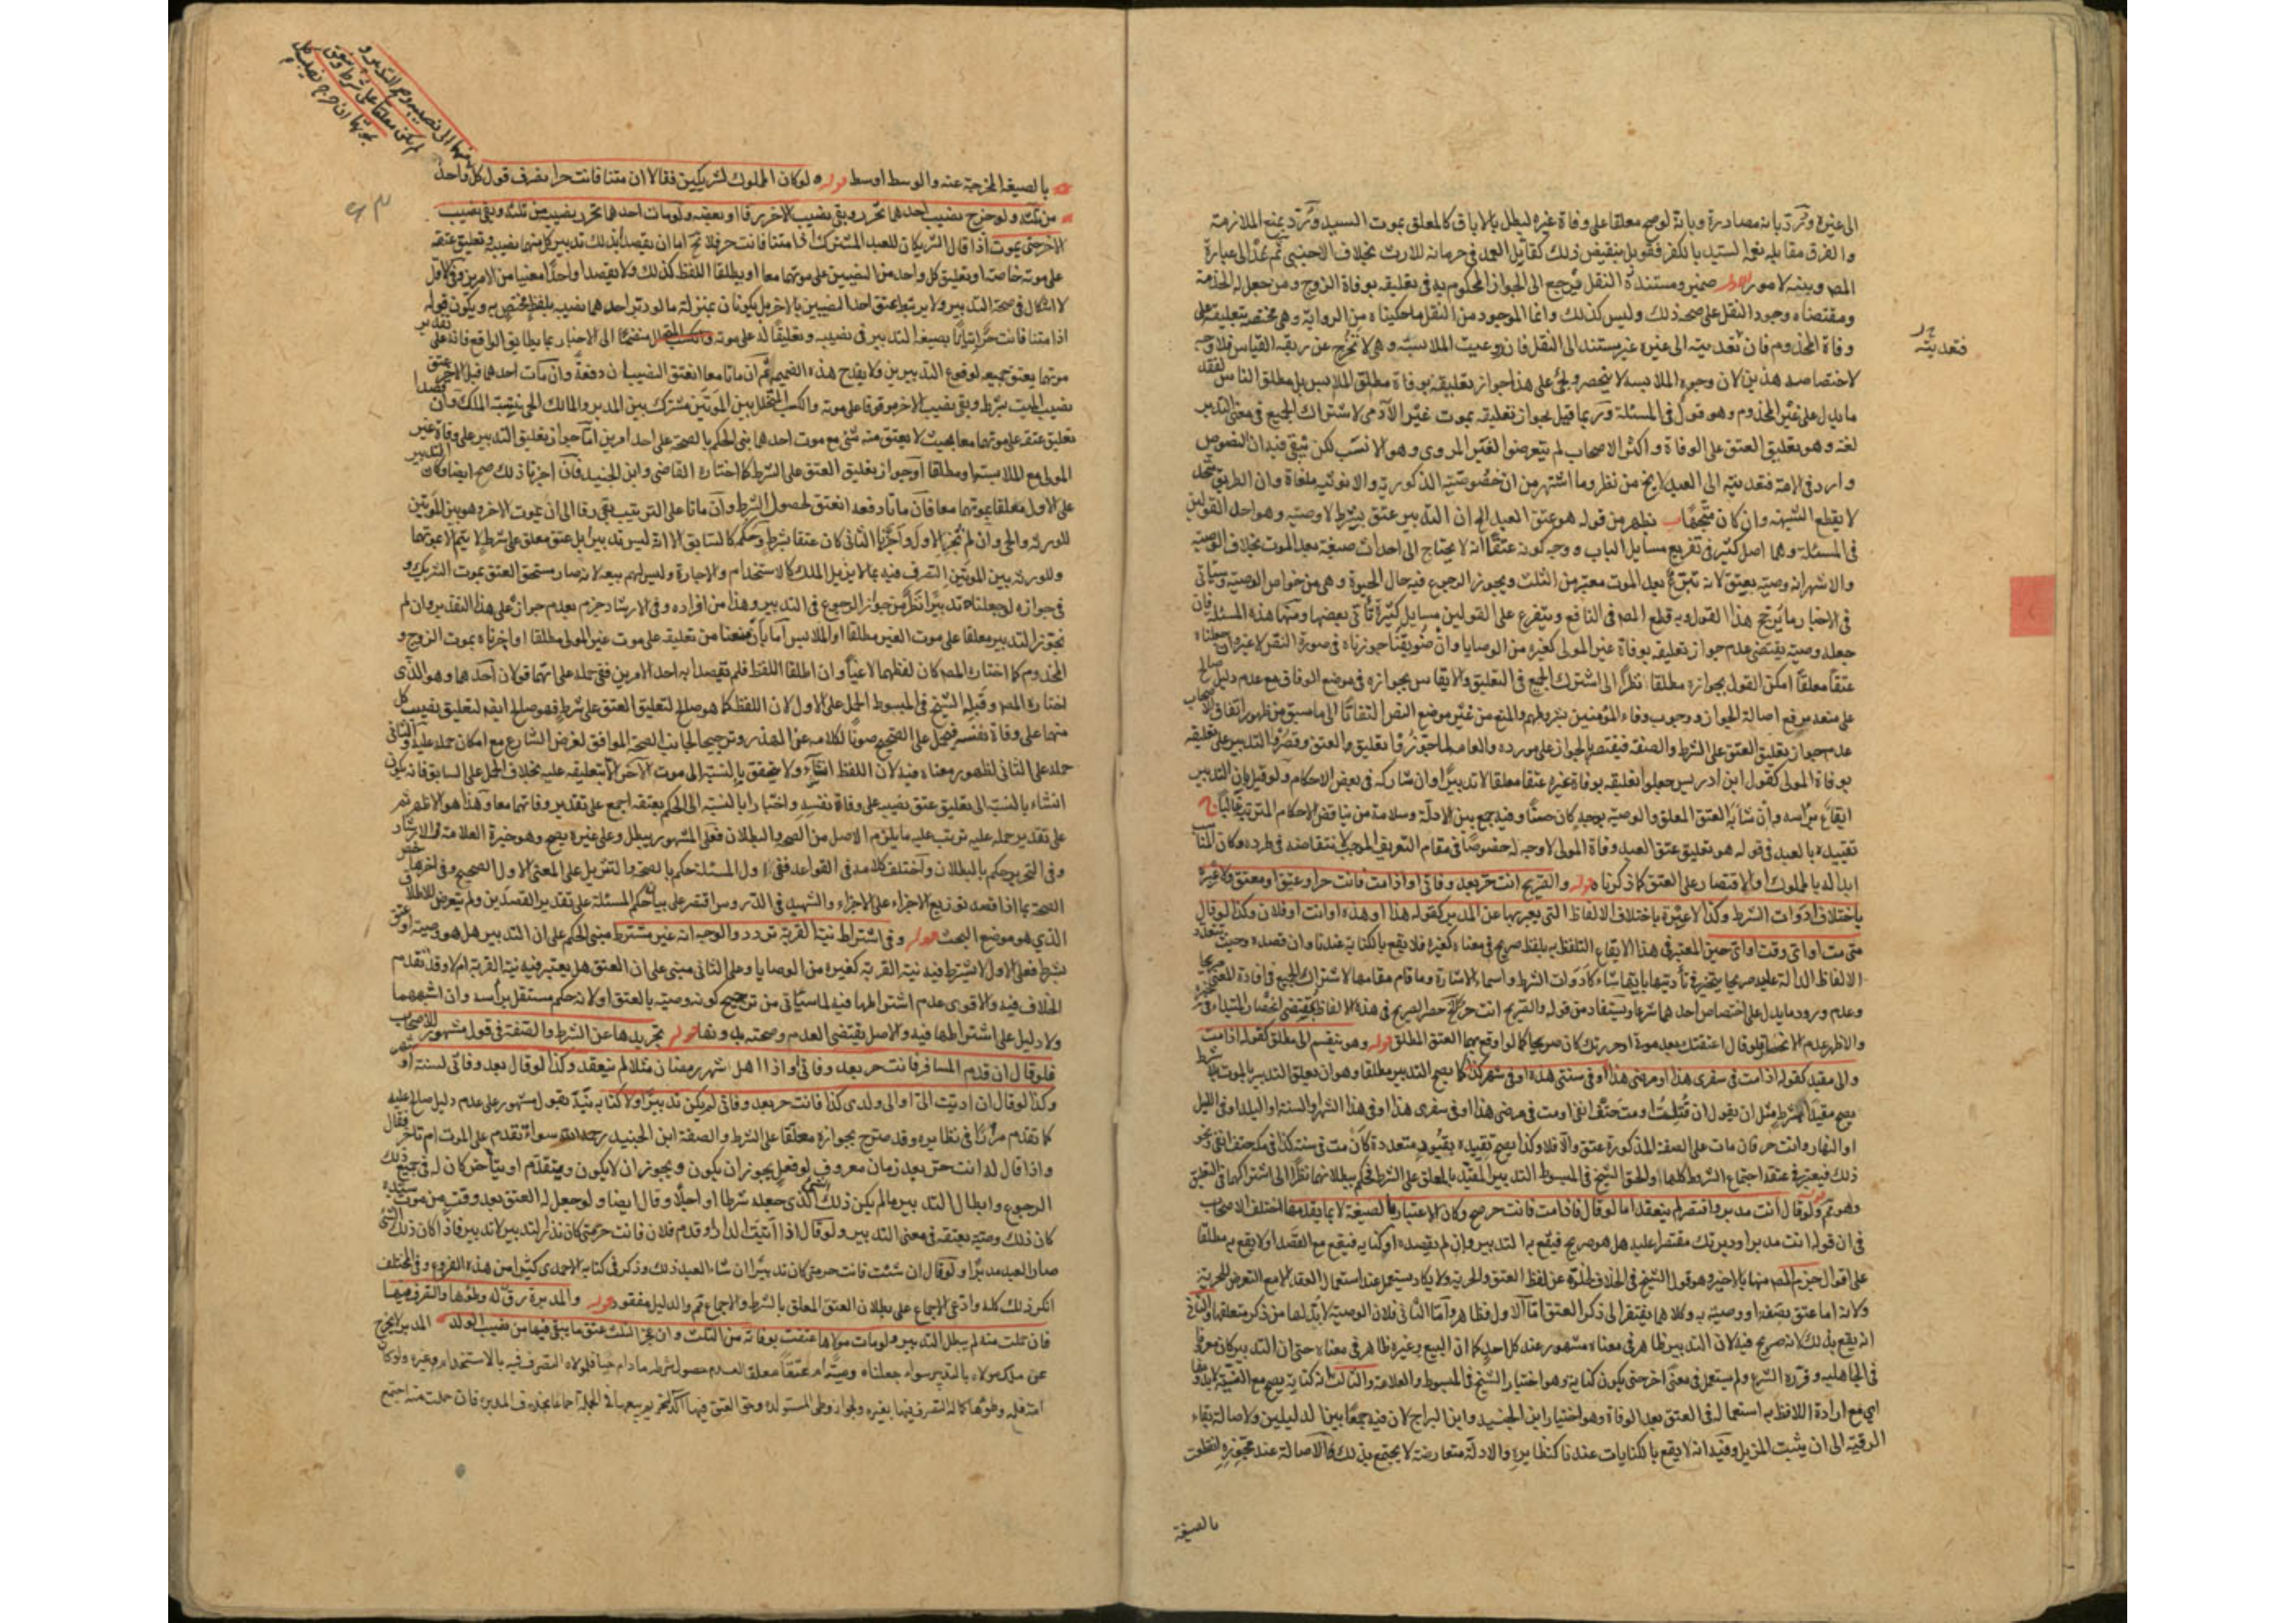 الى غيره وترد بانه مصادرة وبانه لو صح معلقا على وفاة غيره لبطل بالاباق كالمعلق بموت السيد وترد بمنع الملازمة
والفرق مقابلة نعمة السيد بالكفر فقوبل بنقيض ذلك كقاتل العمد في حرمانه للارث بخلاف الاجنبي ثم عد الى عبارة
المصـ وينبه لامور ضمير ومستنده النقل يرجع الى الجواز المحكوم به في تعليقه بوفاة الزوج ومن جعل له الخدمة
ومقتضاه وجود النقل على صحة ذلك وليس كذلك وانما الموجود من النقل ما حكيناه من الرواية وهي مختصة بتعليقه على
وفاة المخدوم فان تعديته الى غيره غير مستند الى النقل فان روعيت الملابسة وهي لا تخرج عن ربقة القياس فلا وجه
فتعديته
لاختصاصه هذين لان وجوه الملابسة لا ينحصر ويجئ على هذا جواز تعليقه بوفاة مطلق الملابس بل مطلق الناس لفقد
ما يدل على غير المخدوم وهو قول في المسئلة وربما قيل بجواز تعليقه بموت غير الآدمي لاشتراك الجميع في معنى التدبير
لغة وهو تعليق العتق على الوفاة واكثر الاصحاب لم يتعرضوا لغير المروي وهو الانسب لكن يبقى فيه ان النصوص
وارد في الامة فتعديته الى العبد لا يخ من نظر وما اشتهر من ان خصوصية الذكورية والانوثية ملغاة وان الطريق متحد
لا يقطع الشبهة وان كان متجها ب يظهر من قوله هو عتق العبد الخ ان التدبير عتق بشرط لا وصية وهو احد القولين
في المسئلة وهما اصل كثير في تفريع مسايل الباب ووجه كونه عتقا انه لا يحتاج الى احداث صيغة بعد الموت بخلاف الوصية
والاشهر انه وصية بعتق لانه تبرع بعد الموت معتبر من الثلث ويجوز الرجوع فيه حال الحيوة وهي من خواص الوصية وسياتي
في الاخبار ما يرجح هذا القول وبه قطع المصـ في النافع ويتفرع على القولين مسايل كثيرة تأتي بعضها ومنها هذه المسئلة فان
جعله وصية يقتضي عدم جواز تعليقه بوفاة غير المولى كغيره من الوصايا وان ضويقنا جوزناه في صورة النص لا غير وان جعلناه
عتقا معلقا امكن القول بجوازه مطلقا نظرا الى اشتراك الجميع في التعليق والايقاس بجوازه في موضع الوفاق مع عدم دليل صالح
على منعه مع اصالة الجواز ووجوب وفاء المؤمنين بشروطهم والمنع من غير موضع النص التفاتا الى ما سبق من ظهور اتفاق الاصحاب
عدم جواز تعليق العتق على الشرط والصفة فيقتصر بالجواز على مورده والعامة لما جوزوا تعليق العتق وقصروا التدبير على تعليقه
بوفاة المولى كقول ابن ادريس جعلوا تعليقه بوفاة غيره عتقا معلقا لا تدبيرا وان شاركه في بعض الاحكام ولو قيل بان التدبير
ايقاع برأسه وان شابه العتق المعلق والوصية بوجه كان حسنا وفيه جمع بين الادلة وسلامة من تناقض الاحكام المترتبة غالبا ج
تقييده بالعبد في قوله هو تعليق عتق العبد بوفاة المولى لا وجه له خصوصا في مقام التعريف الموجب لانتقاضه في طرده وكان المناسب
ابداله بالمملوك او الاقتصار على العتق كما ذكرناه قوله والصريح انت حر بعد وفاتي او اذا مت فانت حر او عتيق او معتق ولا عبرة
باختلاف ادوات الشرط وكذا لا عبرة باختلاف الالفاظ التي يعبر بها عن المدبر كقوله هذا او هذه او انت او فلان وكذا لو قال
متى مت او اي وقت او اي حين المعتبر في هذا الايقاع التلفظ به بلفظ صريح في معناه كغيره فلا يقع بالكناية عندنا وان قصده وحيث تتعدد
الالفاظ الدالة عليه صريحا يتخير في تأديتها بايها شاء كادوات الشرط واسماء الاشارة وما قام مقامها لاشتراك الجميع في افادة المعنى صريحا
وعدم ورود ما يدل على اختصاص احدهما شرعا ويستفاد من قوله والصريح انت حر الخ حصر الصريح في هذه الالفاظ
والاظهر عدم الانحصار فلو قال اعتقتك بعد موتي او حررتك كان صريحا كما لو اوقع بهما العتق المطلق قوله وهو ينقسم الى مطلق كقوله اذا مت
والى مقيد كقوله اذا مت في سفري هذا او مرضي هذا او في سنتي هذه او في شهر كذا كما يصح التدبير مطلقا وهو ان يعلق التدبير بالموت بلا شرط
يصح مقيدا بشرط مثل ان يقول ان قتلت او مت حتف انفي او مت في مرضي هذا او في سفري هذا او في هذا الشهر او السنة او البلد او في الليل
او النهار وانت حر فان مات على الصفة المذكورة عتق والا فلا وكذا يصح تقييده بقيود متعددة كان مت في سنة كذا في مكة حتف انفي ونحو
ذلك فيعتبر في عتقه اجتماع الشرط كلها والحق الشيخ في المبسوط التدبير المقيد بالمعلق على الشرط فحكم ببطلانهما نظرا الى اشتراكهما في التعليق
وهو مم ولو قال انت مدبر واقتصر لم ينعقد اما لو قال فاذا مت فانت حر صح وكان الاعتبار بالصيغة لا بما يقدمها اختلف الاصحاب
في ان قوله انت مدبر او دبرتك مقتصرا عليه هل هو صريح فيقع به التدبير وان لم يقصده او كناية فيقع مع القصد او لا يقع به مطلقا
على اقوال جزم المصـ منها بالاخير وهو قول الشيخ في الخلاف لخلوه عن لفظ العتق والحرية ولا يكاد يستعمل عند استعمال العقد الا مع التعرض للحرية
ولانه اما عتق بصفة او وصية به وكلاهما يفتقر الى ذكر العتق اما الاول فظاهر واما الثاني فلان الوصية لا بد لها من ذكر متعلقها والثاني
انه يقع بذلك لانه صريح فيه لان التدبير ظاهر في معناه مشهور عند كل احد كما ان البيع وغيره ظاهر في معناه حتى ان التدبير كان معروفا
في الجاهلية وقرره الشرع ولم يستعمل في معنى اخر حتى يكون كناية وهو اختيار الشيخ في المبسوط والعلامة والثالث انه كناية يصح مع النية لا بدونها
اي مع ارادة اللافظ به استعماله في العتق بعد الوفاة وهو اختيار ابن الجنيد وابن البراج لان فيه جمعا بين الدليلين ولاصالة بقاء
الرقية الى ان يثبت المزيل وفيه انه لا يقع بالكنايات عندنا كنظايره والادلة متعارضة لا يجتمع بذلك
بالصيغة
بالصيغة المخرجة عنه والوسط اوسط قوله لو كان المملوك لشريكين فقالا ان متنا فانت حر انصرف قول كل واحد
منهما الى نصيبه وصح التدبير و
لم يكن معلقا على شرط وينعتق
بموتهما ان خرج نصيب كل
من ثلثه ولو خرج نصيب احدهما تحرر وبقي نصيب الاخر رقا او بعضه ولو مات احدهما تحرر نصيبه من ثلثه وبقي نصيب
الاخر حتى يموت اذا قال الشريكان للعبد المشترك اذا متنا فانت حر فلا يخ اما ان يقصدا بذلك تدبير كل منهما نصيبه وتعليق عتقه
على موته خاصة او تعليق كل واحد من النصيبين على موتهما معا او يطلقا اللفظ كذلك ولا يقصدا واحدا معينا من الامرين وفي الاول
لا اشكال في صحة التدبير ولا يرتبط عتق احد النصيبين بالاخر بل يكونان بمنزلة ما لو دبر احدهما نصيبه بلفظ مختص به ويكون قوله
اذا متنا فانت حر اتيانا بصيغة التدبير في نصيبه وتعليقا له على موته منضما الى الاخبار بما يطابق الواقع فانه على تقدير
موتهما يعتق جميعه لوقوع التدبيرين فلا يقدح هذه الضميمة ثم ان ماتا معا انعتق النصيبان دفعة وان مات احدهما قبل الاخر عتق
نصيب الميت بشرط وبقي نصيب الاخر موقوفا على موته والكسب المتخلل بين الموتين مشترك بين المدبر والمالك الحي بنسبة الملك وان قصدا
تعليق عتقه على موتهما معا بحيث لا يعتق منه شئ مع موت احدهما بني الحكم بالصحة على احد امرين اما جواز تعليق التدبير على وفاة غير
المولى مع الملابسة او مطلقا او جواز تعليق العتق على الشرط كما اختاره القاضي وابن الجنيد فان اجزنا ذلك صح ايضا وكان التدبير
على الاول معلقا بموتهما معا فان ماتا دفعة انعتق لحصول الشرط وان ماتا على الترتيب بقي رقا الى ان يموت الاخر وهو بين الموتين
للورثة والحي وان لم نجز الاول واجزنا الثاني كان عتقا بشرط وحكم كالسابق الا انه ليس تدبيرا بل عتق معلق على شرط لا يتم الا بموتهما
وللورثة بين الموتين التصرف فيه بما لا يزيل الملك كالاستخدام والاجارة وليس لهم بيعه لانه صار مستحق العتق بموت الشريك و
في جوازه لو جعلناه تدبيرا نظر من جواز الرجوع في التدبير وهذا من افراده وفي الارشاد جزم بعدم جوازه على هذا التقدير وان لم
نجوز التدبير معلقا على موت الغير مطلقا او الملابس اما بان منعنا من تعليقه على موت غير المولى مطلقا او اجزناه بموت الزوج و
المخدوم كما اختاره المصـ كان لفظهما لاغيا وان اطلقا اللفظ فلم يقصدا به احد الامرين ففي حمله على ايهما قولان احدهما وهو الذي
اختاره المصـ وقبله الشيخ في المبسوط الحمل على الاول لان اللفظ كما هو صالح لتعليق العتق على شرط فهو صالح ايضا لتعليق نصيب كل
منهما على وفاة نفسه فيحمل على الصحيح صونا لكلامه عن الهذر وترجيحا لجانب الصحة الموافق لغرض الشارع مع امكان حمله عليه والثاني
حمله على الثاني لظهور معناه فيه لان اللفظ انشاء ولا يتحقق بالنسبة الى موت الاخر الا بتعليقه عليه بخلاف الحمل على السابق فانه يكون
انشاء بالنسبة الى تعليق عتق نصيب على وفاة نفسه واخبارا بالنسبة الى الحكم بعتقه اجمع على تقدير وفاتهما معا وهذا هو الاظهر ثم
على تقدير حمله عليه ترتب عليه ما يلزم الاصل من الصحة والبطلان فعلى المشهور يبطل وعلى غيره يصح وهو خيرة العلامة في الارشاد
وفي التحرير حكم بالبطلان واختلف كلامه في القواعد ففي اول المسئلة حكم بالصحة والتنزيل على المعنى الاول الصحيح وفي اخرها خص
الصحة بما اذا قصد توزيع الاجزاء على الاجزاء والشهيد في الدروس اقتصر على بيان حكم المسئلة على تقدير القصدين ولم يتعرض للاطلاق
الذي هو موضع البحث قوله وفي اشتراط نية القربة تردد والوجه انه غير مشترط مبنى الحكم على ان التدبير هل هو وصية او عتق
بشرط فعلى الاول لا يشترط فيه نية القربة كغيره من الوصايا وعلى الثاني مبني على ان العتق هل يعتبر فيه نية القربة ام لا وقد تقدم
الخلاف فيه والاقوى عدم اشتراطها فيه لما سياتي من ترجيح كونه وصية بالعتق او لانه حكم مستقل برأسه وان اشبههما
ولا دليل على اشتراطها فيه والاصل يقتضي العدم وصحته بدونها قوله تجريدها عن الشرط والصفة في قول مشهور للاصحاب
فلو قال ان قدم المسافر فانت حر بعد وفاتي او اذا اهل شهر رمضان مثلا لم ينعقد وكذا لو قال بعد وفاتي لسنة او شهر
وكذا لو قال ان اديت الي او الى ولدي كذا فانت حر بعد وفاتي لم يكن تدبيرا ولا كتابة بقول مشهور على عدم دليل صالح عليه
كما تقدم مرارا في نظايره وقد صرح بجوازه معلقا على الشرط والصفة ابن الجنيد رحمه الله سواء تقدم على الموت ام تاخر فقال
واذا قال له انت حر بعد زمان معروف لو فعل يجوز ان يكون ويجوز ان لا يكون ويتقدم او يتأخر كان له في جميع ذلك
الرجوع وابطال التدبير ما لم يكن ذلك الشئ الذي جعله شرطا او اجلا وقال ايضا ولو جعل له العتق بعد وقت من موت سيده
كان ذلك وصية بعتقه في معنى التدبير ولو قال اذا اتيت الدار او قدم فلان فانت حر متى كان نذرا لتدبير لا تدبير فاذا كان ذلك الشئ
صار العبد مدبرا ولو قال ان شئت فانت حر متى كان تدبيرا ان شاء العبد ذلك وذكر في كتابه الاحمدي كثيرا من هذه الفروع وفي المختلف
انكر ذلك كله وادعى الاجماع على بطلان العتق المعلق بالشرط والاجماع مم والدليل مفقود قوله والمدبرة رق له وطؤها والتصرف فيها
فان حملت منه لم يبطل التدبير ولو مات مولاها عتقت بوفاته من الثلث وان عجز الثلث عتق ما بقي فيها من نصيب الولد المدبر لا يخرج
عن ملك مولاه بالتدبير سواء جعلناه وصية ام عتقا معلقا لعدم حصول شرطه ما دام حيا فلمولاه التصرف فيه بالاستخدام وغيره ولو كان
امة فله وطؤها كما له التصرف فيها بغيره ولجواز وطي المستولدة وحق العتق فيها آكد لتحريم بيعها في الجملة اجماعا بخلاف المدبرة فان حملت منه اجتمع